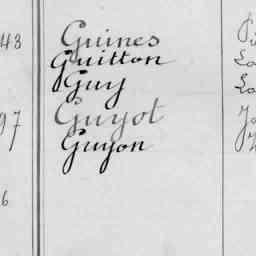 43 Guines
Guitton
Guy
97 Guyot
Guyon
6